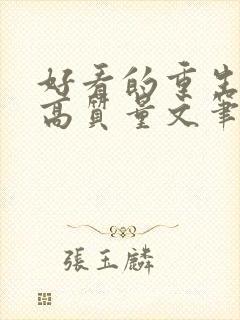 好看的重生
高质量文笔
張玉麟